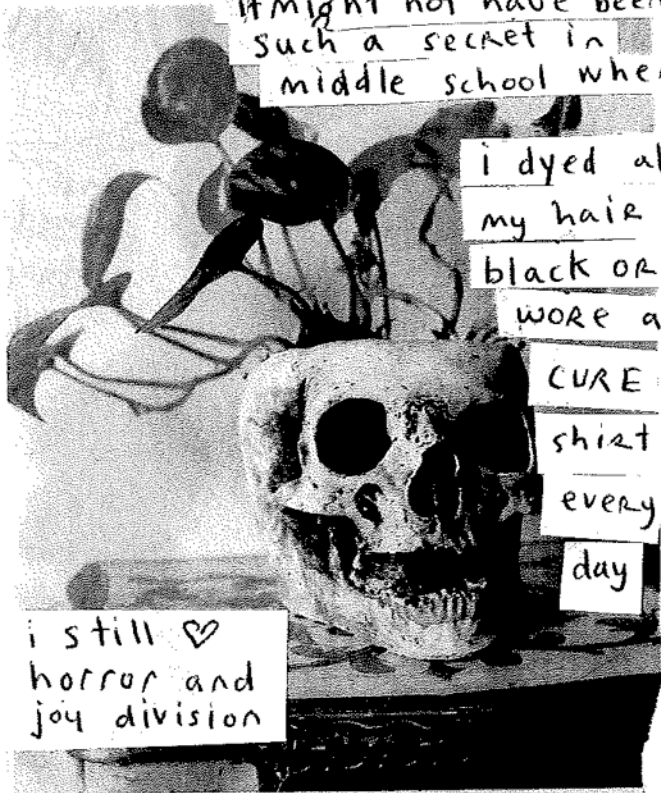 it might not have been
such a secret in
middle school when
i dyed al
my hair
black OR
wore a
CURE
shirt
every
day
i still ♡
horror and
joy division